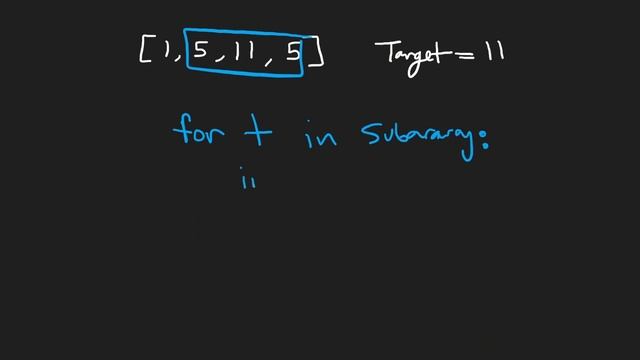 [1, 5, 11, 5] Target = 11
for t in Subararay:
ii